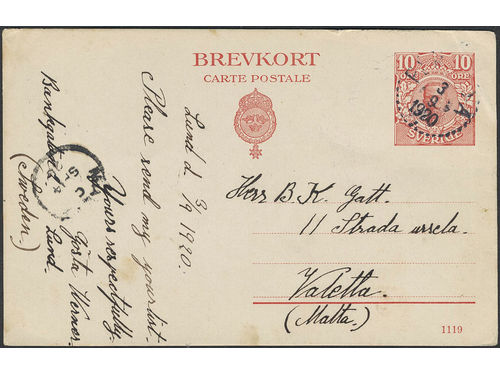 BREVKORT
CARTE POSTALE
10 10
ÖRE
SVERIGE
3
1920
Herr B. K. Gatt.
11 Strada
Valetta.
(Malta.)
1119
Lund d. 3/9 1920.
Please send my
Yours respectfully
Gösta Werner
Lund.
(Sweden)